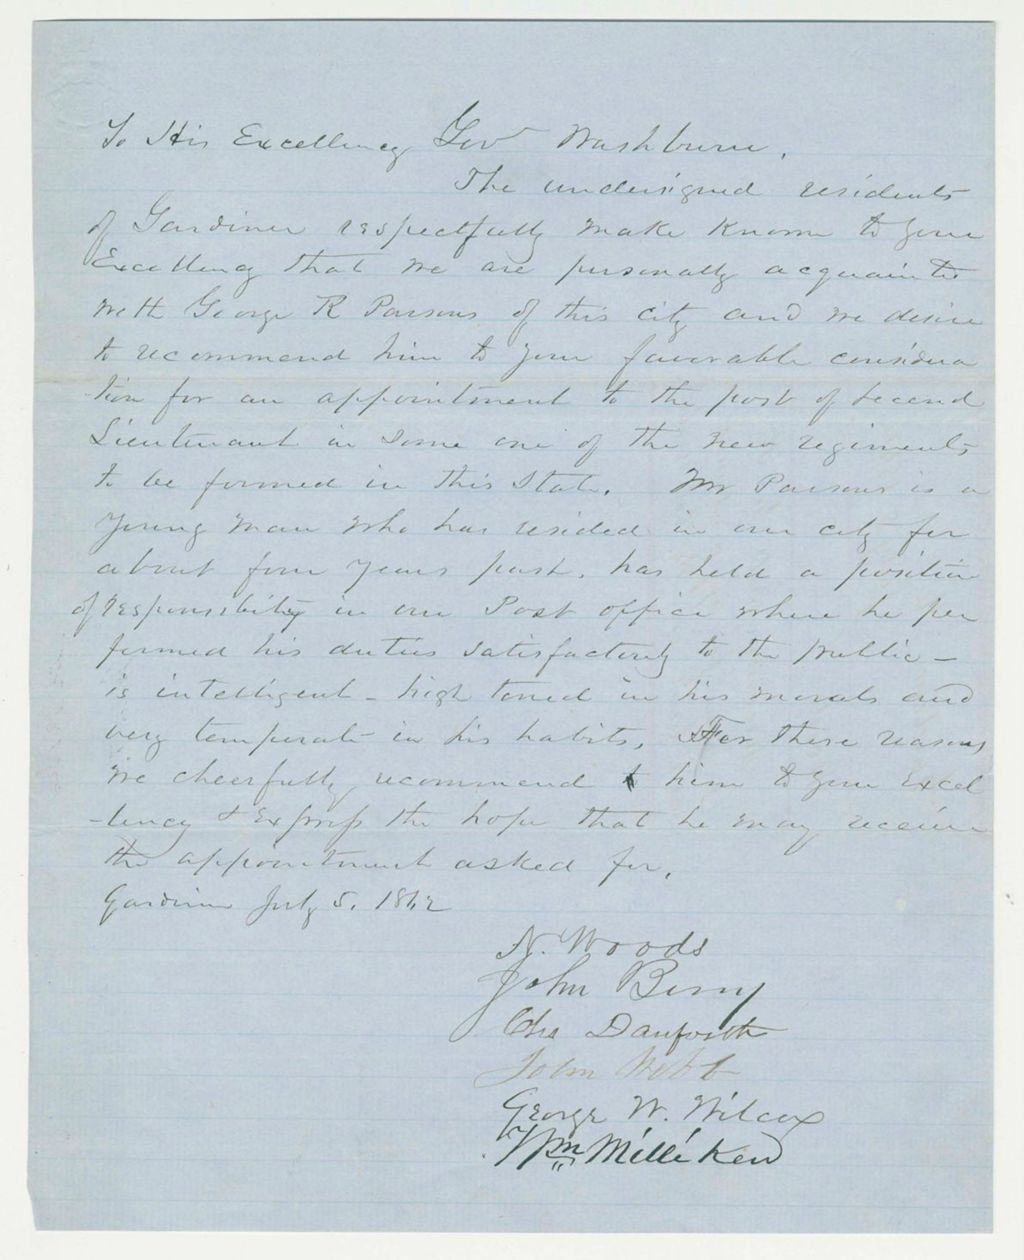 To His Excellency Gov Washburne.
The undersigned residents
of Gardiner respectfully make known to your
Excellency that we are personally acquainted
with George R Parsons of this city and we desire
to recommend him to your favorable considera
tion for an appointment to the post of second
Lieutenant in some one of the new regiments
to be formed in this State. Mr Parsons is a
young man who has resided in our city for
about four years past. has held a position
of responsibility in our Post office where he per
formed his duties satisfactorily to the public –
is intelligent – high toned in his morals and
very temperate in his habits. For these reasons
we cheerfully recommend him to your Excel
-lency & Express the hope that he may receive
the appointment asked for.
Gardiner July 5. 1862
N. Woods
John Berry
Chs Danforth
John Webb
George W. Wilcox
Wm Milliken